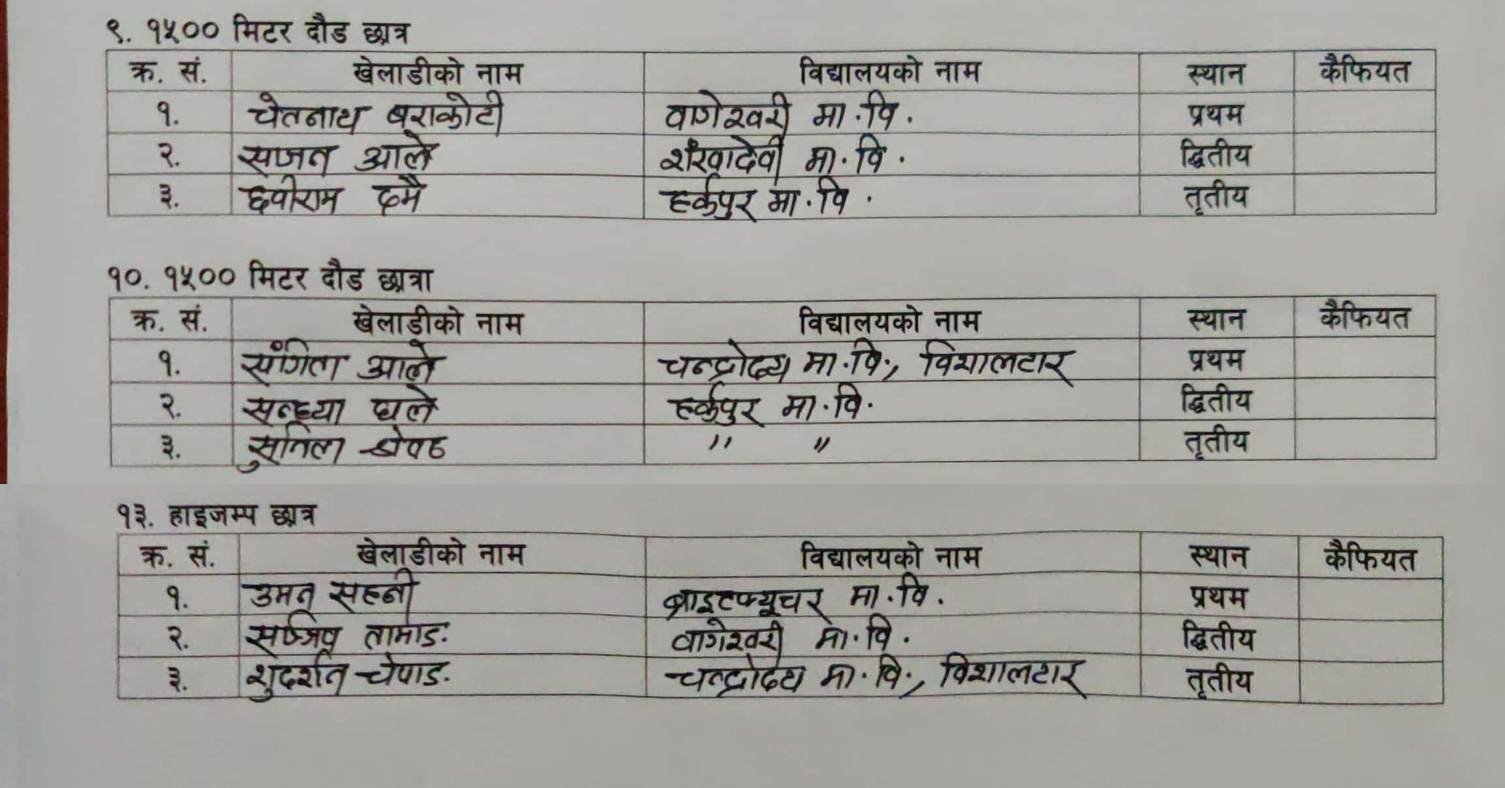 ९. १५०० मिटर दौड छात्र
क्र. सं. खेलाडीको नाम विद्यालयको नाम स्थान कैफियत
१. चेतनाथ बराकोटी वागेश्वरी मा.वि. प्रथम
२. सजन आले शंखादेवी मा.वि. द्वितीय
३. छवीराम दमै हर्कपुर मा.वि. तृतीय
१०. १५०० मिटर दौड छात्रा
क्र. सं. खेलाडीको नाम विद्यालयको नाम स्थान कैफियत
१. संगिता आले चन्द्रोदय मा.वि., विशालटार प्रथम
२. सन्ध्या घले हर्कपुर मा.वि. द्वितीय
३. सुनिता श्रेष्ठ " " तृतीय
१३. हाइजम्प छात्र
क्र. सं. खेलाडीको नाम विद्यालयको नाम स्थान कैफियत
१. उमन सहनी ब्राइटफ्यूचर मा.वि. प्रथम
२. तामाङ वागेश्वरी मा.वि. द्वितीय
३. शुदर्शन चेपाङ चन्द्रोदय मा.वि., विशालटार तृतीय